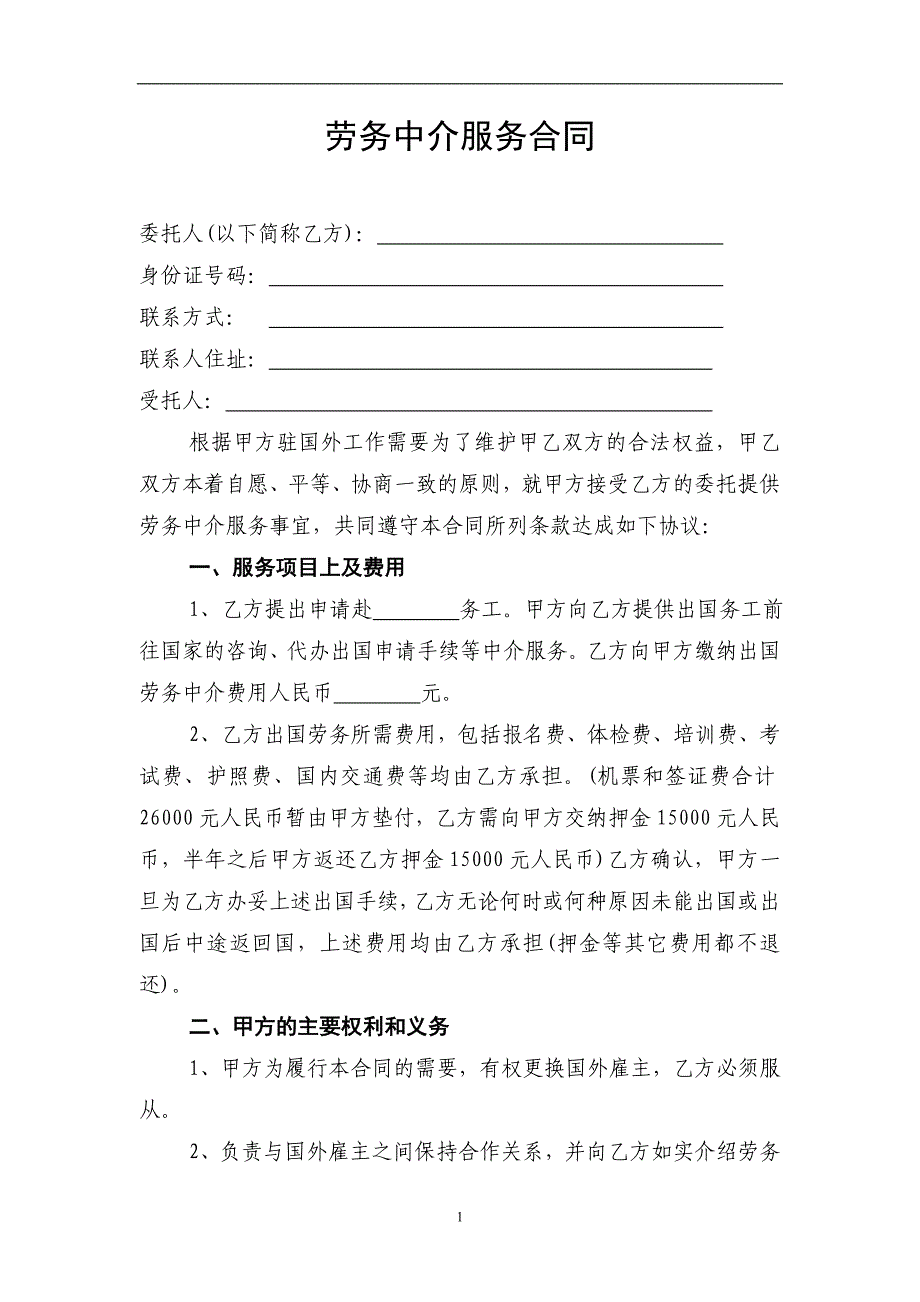 劳务中介服务合同
委托人(以下简称乙方):
身份证号码:
联系方式:
联系人住址:
受托人:
根据甲方驻国外工作需要为了维护甲乙双方的合法权益，甲乙
双方本着自愿、平等、协商一致的原则，就甲方接受乙方的委托提供
劳务中介服务事宜，共同遵守本合同所列条款达成如下协议:
一、服务项目上及费用
1、乙方提出申请赴________务工。甲方向乙方提供出国务工前
往国家的咨询、代办出国申请手续等中介服务。乙方向甲方缴纳出国
劳务中介费用人民币________元。
2、乙方出国劳务所需费用，包括报名费、体检费、培训费、考
试费、护照费、国内交通费等均由乙方承担。(机票和签证费合计
26000 元人民币暂由甲方垫付，乙方需向甲方交纳押金 15000 元人民
币，半年之后甲方返还乙方押金 15000 元人民币)乙方确认，甲方一
旦为乙方办妥上述出国手续，乙方无论何时或何种原因未能出国或出
国后中途返回国，上述费用均由乙方承担(押金等其它费用都不退
还)。
二、甲方的主要权利和义务
1、甲方为履行本合同的需要，有权更换国外雇主，乙方必须服
从。
2、负责与国外雇主之间保持合作关系，并向乙方如实介绍劳务
1